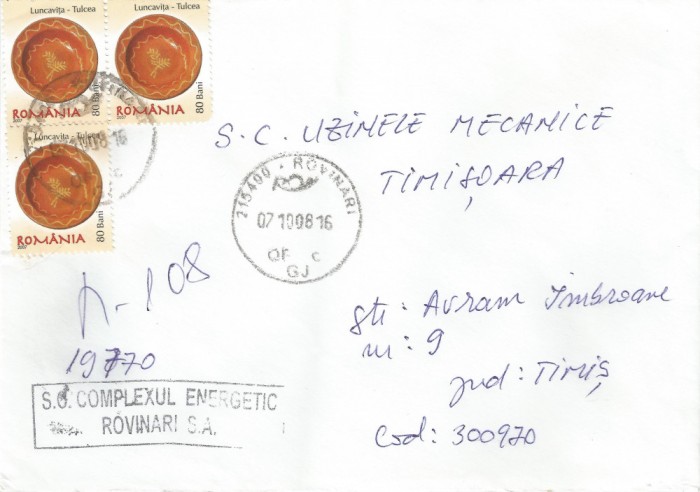 Luncavița - Tulcea
80 Bani
ROMÂNIA
2007
Luncavița - Tulcea
80 Bani
ROMÂNIA
2007
Luncavița - Tulcea
80 Bani
ROMÂNIA
2007
S.C. UZINELE MECANICE
TIMIȘOARA
215400 - ROVINARI
07 10 08 16
OF c
GJ
R-108
19770
S.C. COMPLEXUL ENERGETIC
ROVINARI S.A.
str: Avram Imbroane
nr: 9
jud: TIMIȘ
Cod: 300970